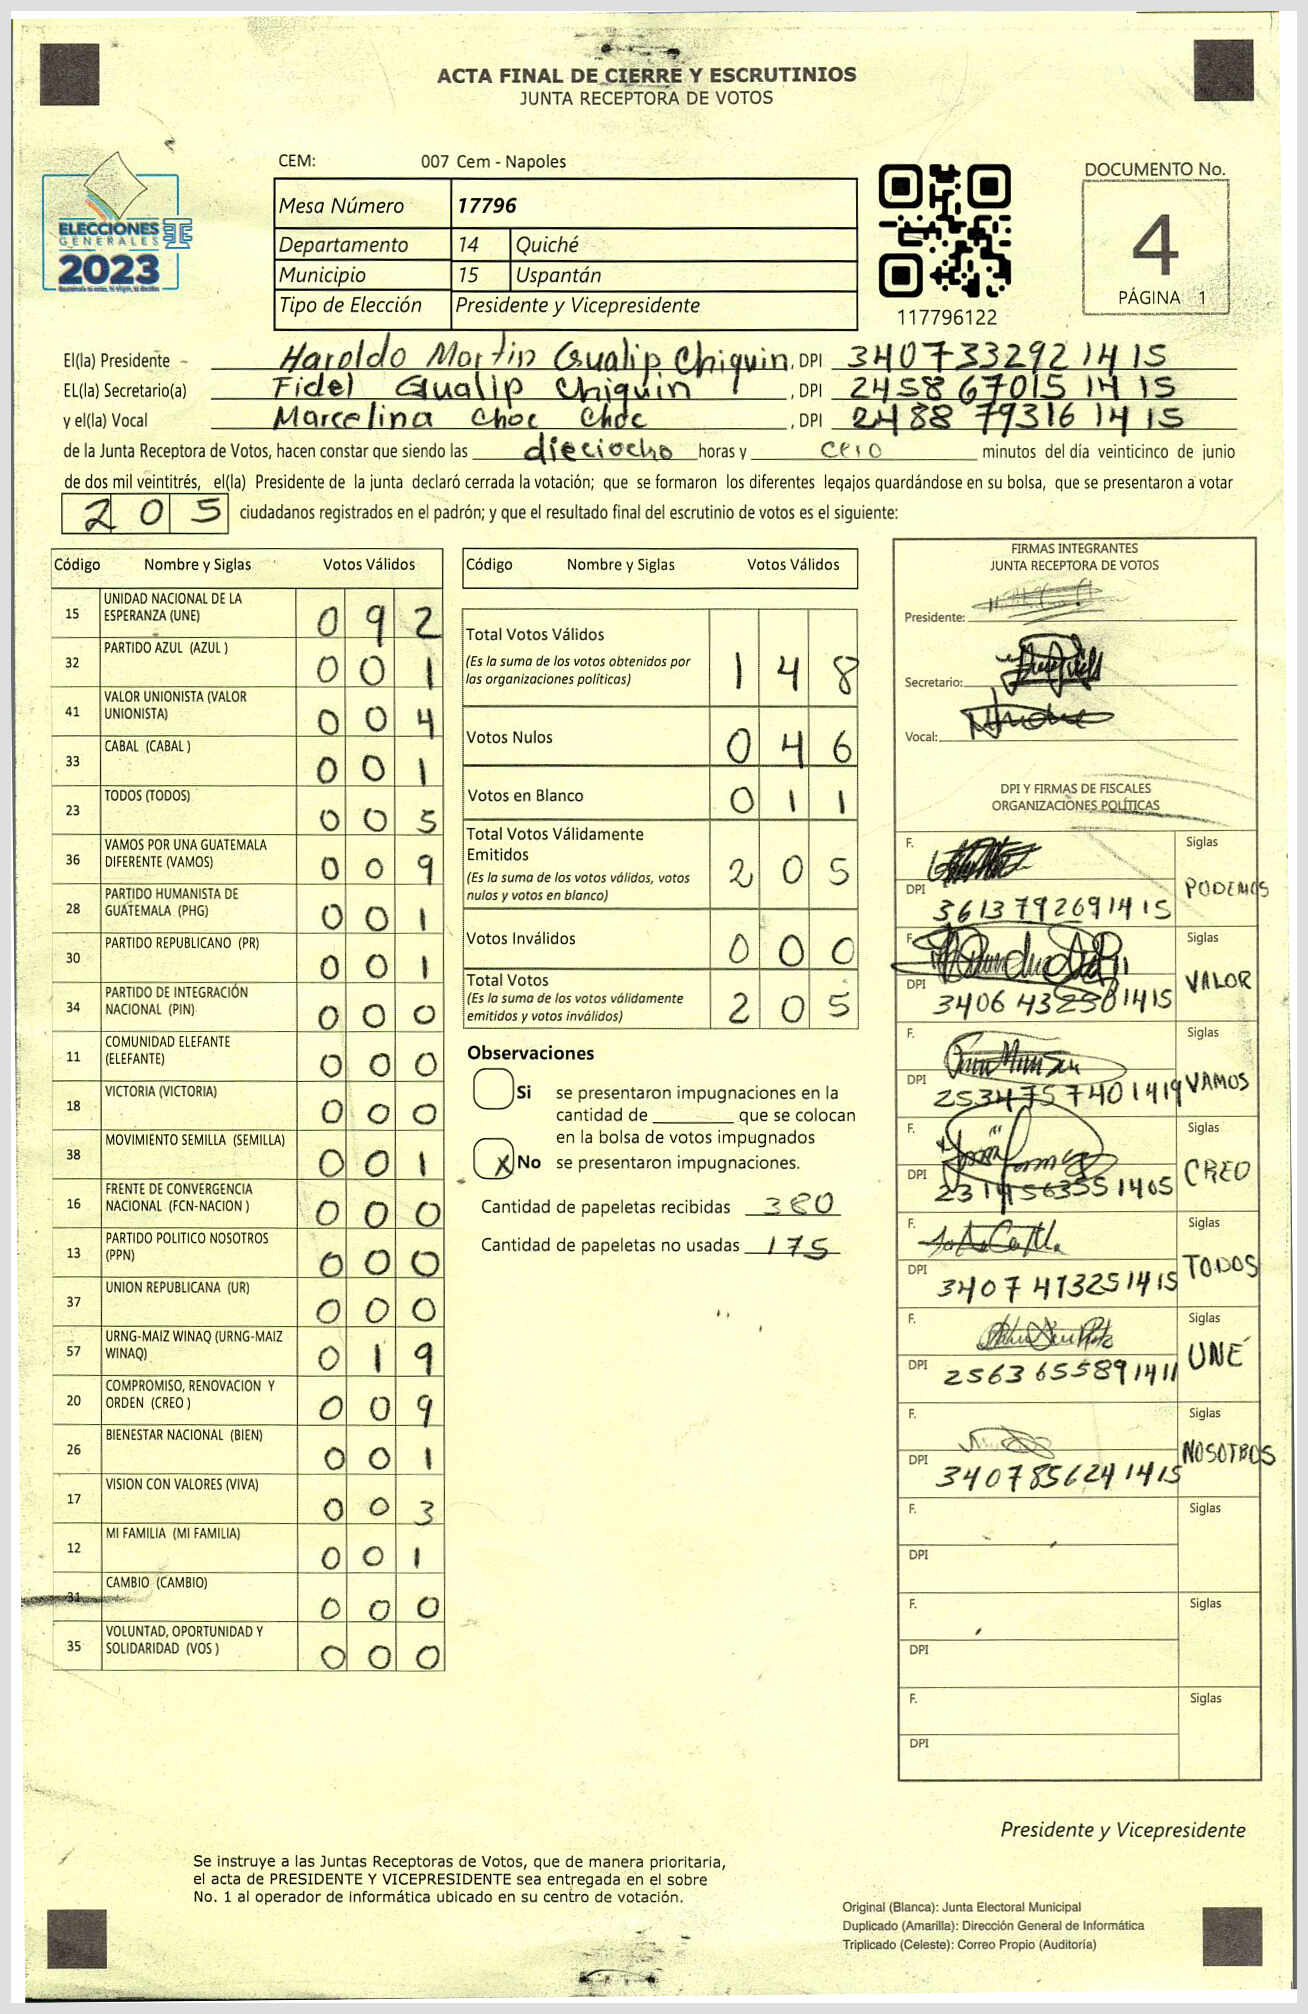 ACTA FINAL DE CIERRE Y ESCRUTINIOS
JUNTA RECEPTORA DE VOTOS
CEM: 007 Cem - Napoles
ELECCIONES
GENERALES
2023
Mesa Número 17796
Departamento 14 Quiché
Municipio 15 Uspantán
Tipo de Elección Presidente y Vicepresidente
117796122
DOCUMENTO No.
4
PÁGINA 1
El(la) Presidente Haroldo Martin Gualip Chiquin, DPI 3407332921415
EL(la) Secretario(a) Fidel Gualip Chiquin, DPI 2458670151415
y el(la) Vocal Marcelina Choc Choc, DPI 2488793161415
de la Junta Receptora de Votos, hacen constar que siendo las dieciocho horas y cero minutos del día veinticinco de junio
de dos mil veintitrés, el(la) Presidente de la junta declaró cerrada la votación; que se formaron los diferentes legajos guardándose en su bolsa, que se presentaron a votar
205 ciudadanos registrados en el padrón; y que el resultado final del escrutinio de votos es el siguiente:
Código Nombre y Siglas Votos Válidos
15 UNIDAD NACIONAL DE LA ESPERANZA (UNE) 092
32 PARTIDO AZUL (AZUL ) 001
41 VALOR UNIONISTA (VALOR UNIONISTA) 004
33 CABAL (CABAL ) 001
23 TODOS (TODOS) 005
36 VAMOS POR UNA GUATEMALA DIFERENTE (VAMOS) 009
28 PARTIDO HUMANISTA DE GUATEMALA (PHG) 001
30 PARTIDO REPUBLICANO (PR) 001
34 PARTIDO DE INTEGRACIÓN NACIONAL (PIN) 000
11 COMUNIDAD ELEFANTE (ELEFANTE) 000
18 VICTORIA (VICTORIA) 000
38 MOVIMIENTO SEMILLA (SEMILLA) 001
16 FRENTE DE CONVERGENCIA NACIONAL (FCN-NACION ) 000
13 PARTIDO POLITICO NOSOTROS (PPN) 000
37 UNION REPUBLICANA (UR) 000
57 URNG-MAIZ WINAQ (URNG-MAIZ WINAQ) 019
20 COMPROMISO, RENOVACION Y ORDEN (CREO ) 009
26 BIENESTAR NACIONAL (BIEN) 001
17 VISION CON VALORES (VIVA) 003
12 MI FAMILIA (MI FAMILIA) 001
31 CAMBIO (CAMBIO) 000
35 VOLUNTAD, OPORTUNIDAD Y SOLIDARIDAD (VOS ) 000
Código Nombre y Siglas Votos Válidos
Total Votos Válidos 148
(Es la suma de los votos obtenidos por
las organizaciones políticas)
Votos Nulos 046
Votos en Blanco 011
Total Votos Válidamente
Emitidos 205
(Es la suma de los votos válidos, votos
nulos y votos en blanco)
Votos Inválidos 000
Total Votos 205
(Es la suma de los votos válidamente
emitidos y votos inválidos)
Observaciones
Si se presentaron impugnaciones en la
cantidad de ______ que se colocan
en la bolsa de votos impugnados
X No se presentaron impugnaciones.
Cantidad de papeletas recibidas 380
Cantidad de papeletas no usadas 175
FIRMAS INTEGRANTES
JUNTA RECEPTORA DE VOTOS
Presidente:
Secretario:
Vocal:
DPI Y FIRMAS DE FISCALES
ORGANIZACIONES POLÍTICAS
F. Siglas
DPI 3613792691415 PODEMOS
F. Siglas
DPI VALOR
F. Siglas
DPI 2534757401419 VAMOS
F. Siglas
DPI 2314563551405 CREO
F. Siglas
DPI 3407473251415 TODOS
F. Siglas
DPI 2563655891411 UNE
F. Siglas
DPI 3407856241415 NOSOTROS
F. Siglas
DPI
F. Siglas
DPI
F. Siglas
DPI
Presidente y Vicepresidente
Se instruye a las Juntas Receptoras de Votos, que de manera prioritaria,
el acta de PRESIDENTE Y VICEPRESIDENTE sea entregada en el sobre
No. 1 al operador de informática ubicado en su centro de votación.
Original (Blanca): Junta Electoral Municipal
Duplicado (Amarilla): Dirección General de Informática
Triplicado (Celeste): Correo Propio (Auditoría)